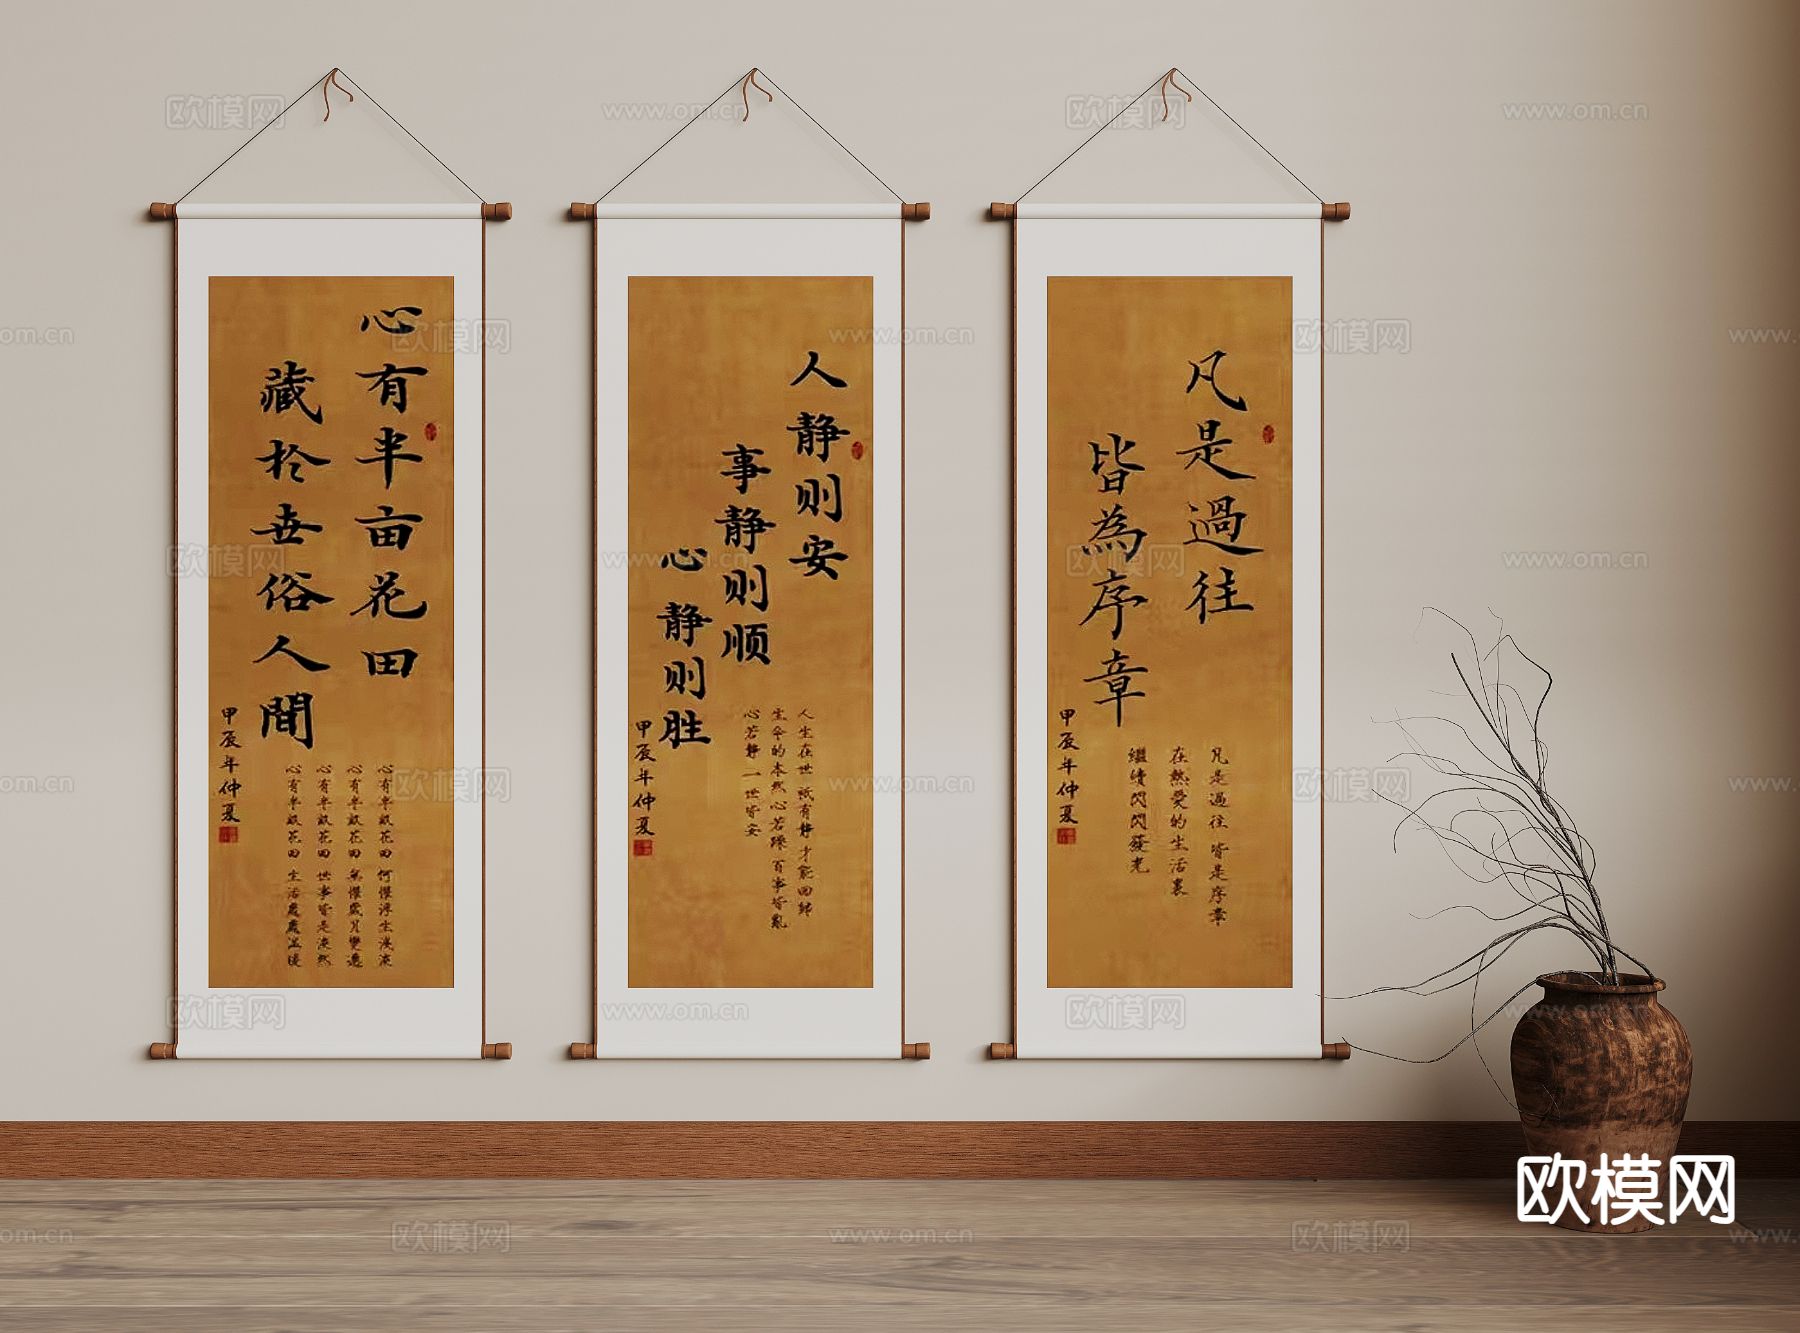 心有半亩花田
藏扵世俗人間
心有半畝花田 何懼浮生淺淡
心有半畝花田 無懼歲月變遷
心有半畝花田 世事皆是淡然
心有半畝花田 生活處處溫暖
甲辰年仲夏
人静则安
事静则顺
心静则胜
人生在世 祇有静才能回歸
生命的本然心若躁 百事皆亂
心若静 一世皆安
甲辰年仲夏
凡是過往
皆為序章
凡是過往 皆是序章
在熱愛的生活裏
繼續閃閃發光
甲辰年仲夏
欧模网
www.om.cn